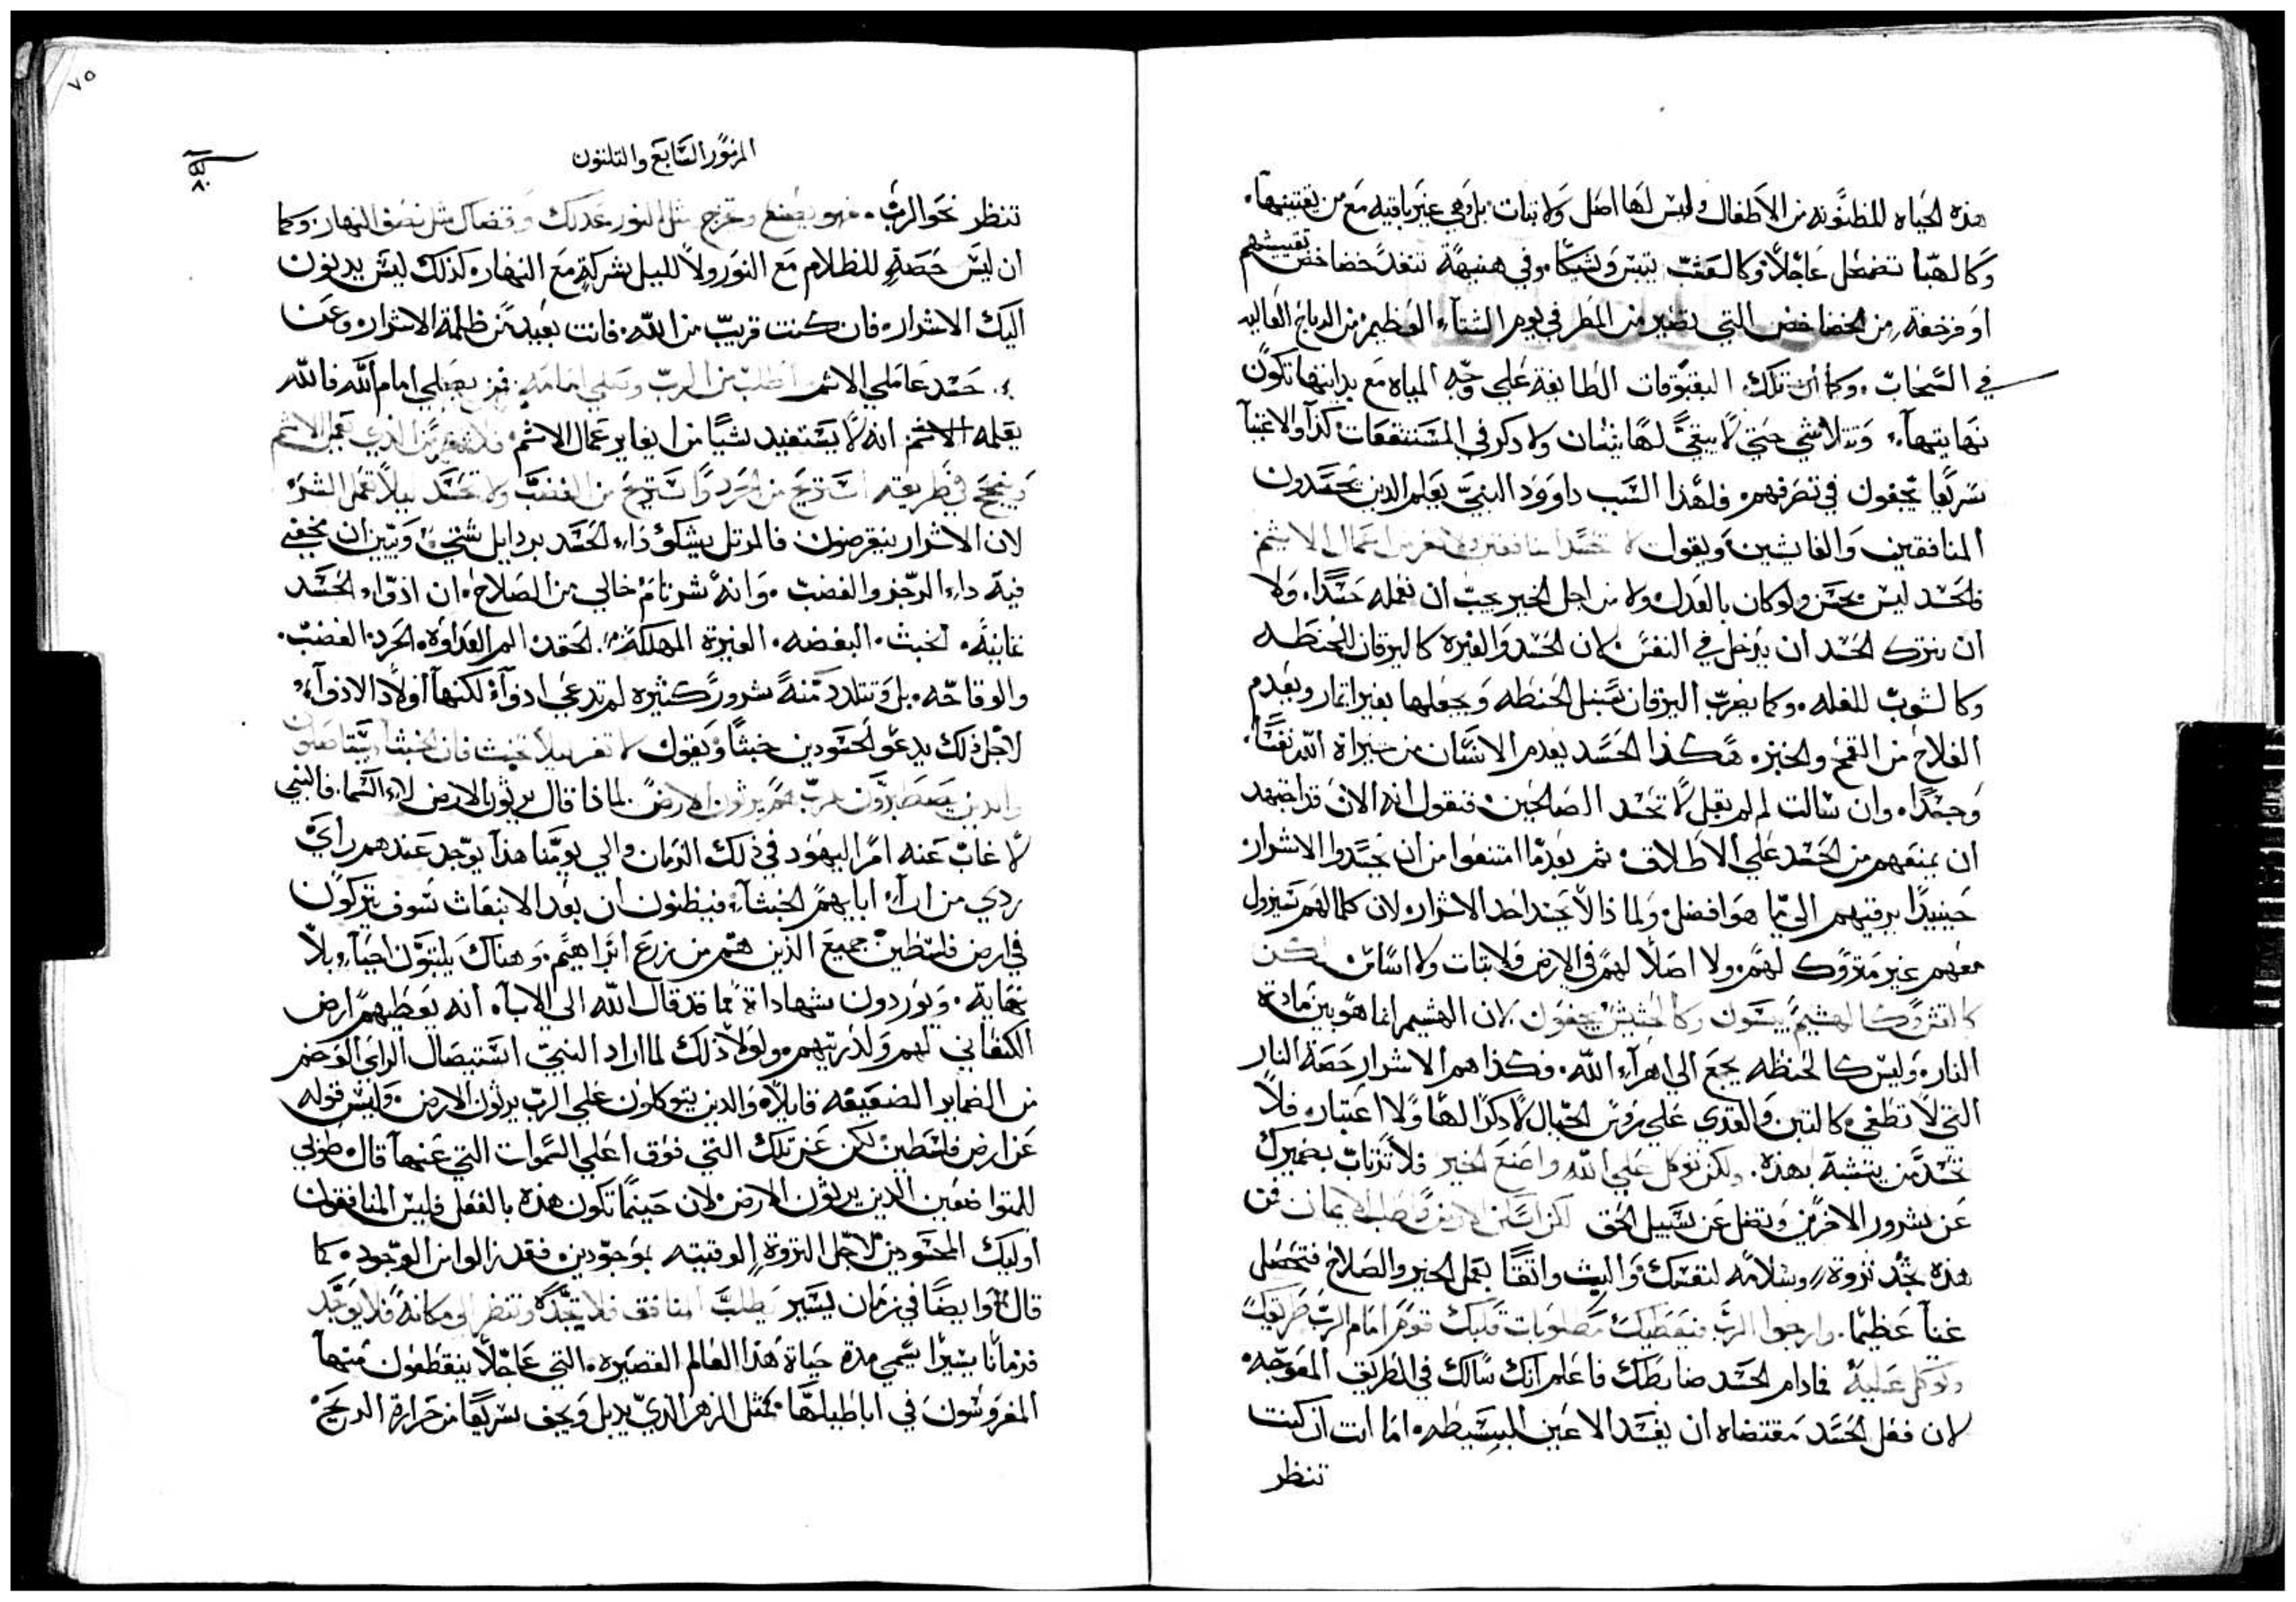 هذه الحياه المظنونه من الاطفال وليس لها اصل ولا ثبات بل وهي غير باقيه مع من يقتنيها.
وكالهبا تضمحل عاجلاً وكالعشب ييبس وشيكًا، وفي هنيهة تنفد خضاخض تفتيشهم
او فرخعة من الخضاخض التي تصير من المطر في يوم الشتاء العظيم من الرياح العاليه
في السحاب. وكما ان تلك البقبوقات الطايفة علي وجه المياه مع بدايتها تكون
نهايتها، وتتلاشي حتي لا يبقي لها نيشان ولا ذكر في المستنقعات كذا والاغنيآ
سريعا يجفون في تصرفهم. فلهذا السبب داوود النبي يعلم الذين يحسدون
المنافقين والغاشين ويقول لا تحسد المنافقين ولا تغر من اعمال الاثم
فالحسد ليس بحسن ولو كان بالعدل ولا من اجل الخير يجب ان نعمله حسدًا، ولا
ان نترك الحسد ان يدخل في النفس لان الحسد والغيره كاليرقان للحنطه
وكالشوب للغله. وكما يضرب اليرقان سنبل الحنطه ويجعلها بغير اثمار ويعدم
الفلاح من القمح والخبز. هكذا الحسد يعدم الانسان من ميراث الله نفسًا
وجسدًا، وان سالت لم لم يقل لا تحسد الصالحين فنقول انه الان قد اجتهد
ان يمنعهم من الحسد علي الاطلاق ثم بعدما امتنعوا من ان يحسدوا الاشرار
حينيذًا يرقيهم الي ما هو افضل ولماذا لا يحسد احد الاشرار لان كلما لهم سيزول
معهم غير متروك لهم، ولا اصلا لهم في الارض ولا ثبات ولا اساس لكن
كالقش وكالهشيم ييبسون وكالحشيش يجفون. لان الهشيم انما هو بين مادة
النار وليس كالحنطه يجمع الي اهرآء الله. فكذا هم الاشرار حصة النار
التي لا تطفي، كالتبن والقدي علي روس الجبال لا ذكرًا لها ولا اعتبار فلا
تحسد من يتشبه بهذه. ولكن توكل علي الله واصنع الخير فلا ترتاب بضميرك
عن شرور الاخرين وتضل عن سبيل الحق لكن اسكن الارض الايمان فمن
هذه تجد ثروة، وسلامه لنفسك والبث واثقًا بعمل الخير والصلاح فتحصل
غنآ عظيمًا. وارجوا الرب فيعطيك مطلوبات قلبك قوم امام الرب طريقك
وتوكل علية فمادام الحسد ضابطك فاعلم انك سالك في الطريق المعوجه.
لان فعل الحسد مقتضاه ان يفسد الاعين البسيطه. اما انت ان كنت
تنظر
٧٥
المزمور السابع والثلثون
تنظر نحو الرب. فهو يصنع ويخرج مثل النور عدلك وقضاك مثل نصف النهار. وكما
ان ليس حصة للظلام مع النور ولا لليل شركة مع النهار. كذلك ليس يدنون
اليك الاشرار. فان كنت قريب من الله. فانت بعيد من ظلمة الاشرار. وعن
حسد عاملي الاثم اطلب من الرب وصلي امامه. فمن يصلي امام الله فالله
يعلمه انه لا يستفيد شيًا من ان يغاير عمال الاثم فلا تغر من الذي يعمل الاثم
وينجح في طريقته استريح من الحرد واستريح من الغضب ولا تحسد ليلا تعمل الشر
لان الاشرار ينقرضون فالمرتل يشكوُ داء الحسد برذايل شتي، ويبين ان مخفي
فيه داء الرجز والغضب. وانه شر تام خالي من الصلاح. ان ادواء الحسد
ثمانية. الخبث. البغضه. الغيرة المهلكة. الحقد. المر العداوة. الحرد. الغضب.
والوقاحه. بل وتتلد منه شرور كثيره لم تدعي ادوآء لكنها اولاد الادوآء
لاجل ذلك يدعو الحسودين خبثًا ويقول لا تغر ليلا تخبث فان الخبثا يستاصلون
والذين يصطبرون للرب هم يرثون الارض. لماذا قال يرثون الارض لا السما. فالنبي
لا غاب عنه امر اليهود في ذلك الزمان والي يومنا هذا يوجد عندهم رأي
ردي من ارآء ابايهم الخبثآء فيظنون ان بعد الانبعاث سوف يتركون
في ارض فلسطين جميع الذين هم من زرع ابراهيم. وهناك يلبثون احيآء بلا
نهاية. ويوردون شهاداة مما قد قال الله الي الابآء انه يعطيهم ارض
الكنعاني لهم ولذريتهم، ولولا ذلك لما اراد النبي استيصال الراي الوخم
من الضماير الضعيفه قايلا والذين يتوكلون علي الرب يرثون الارض. وليس قوله
عن ارض فلسطين لكن عن تلك التي فوق اعلي السموات التي عنها قال طوبي
للمتواضعين الذين يرثون الارض لان حينما تكون هذه بالفعل فليس المنافقون
اوليك المحسودين لاجل الثروة الوقتيه بموجودين. فقد زالوا من الوجود. كما
قال وايضًا في زمان يسير يطلب المنافق فلا تجده وتنظر الي مكانه فلا يوجد
فزمانا يسيرا يسمي مدة حياة هذا العالم القصيره. التي عاجلا ينقطعون منها
المغروسون في اباطيلها، كمثل الزهر الذي يذبل ويجف سريعًا من حرارة الريح